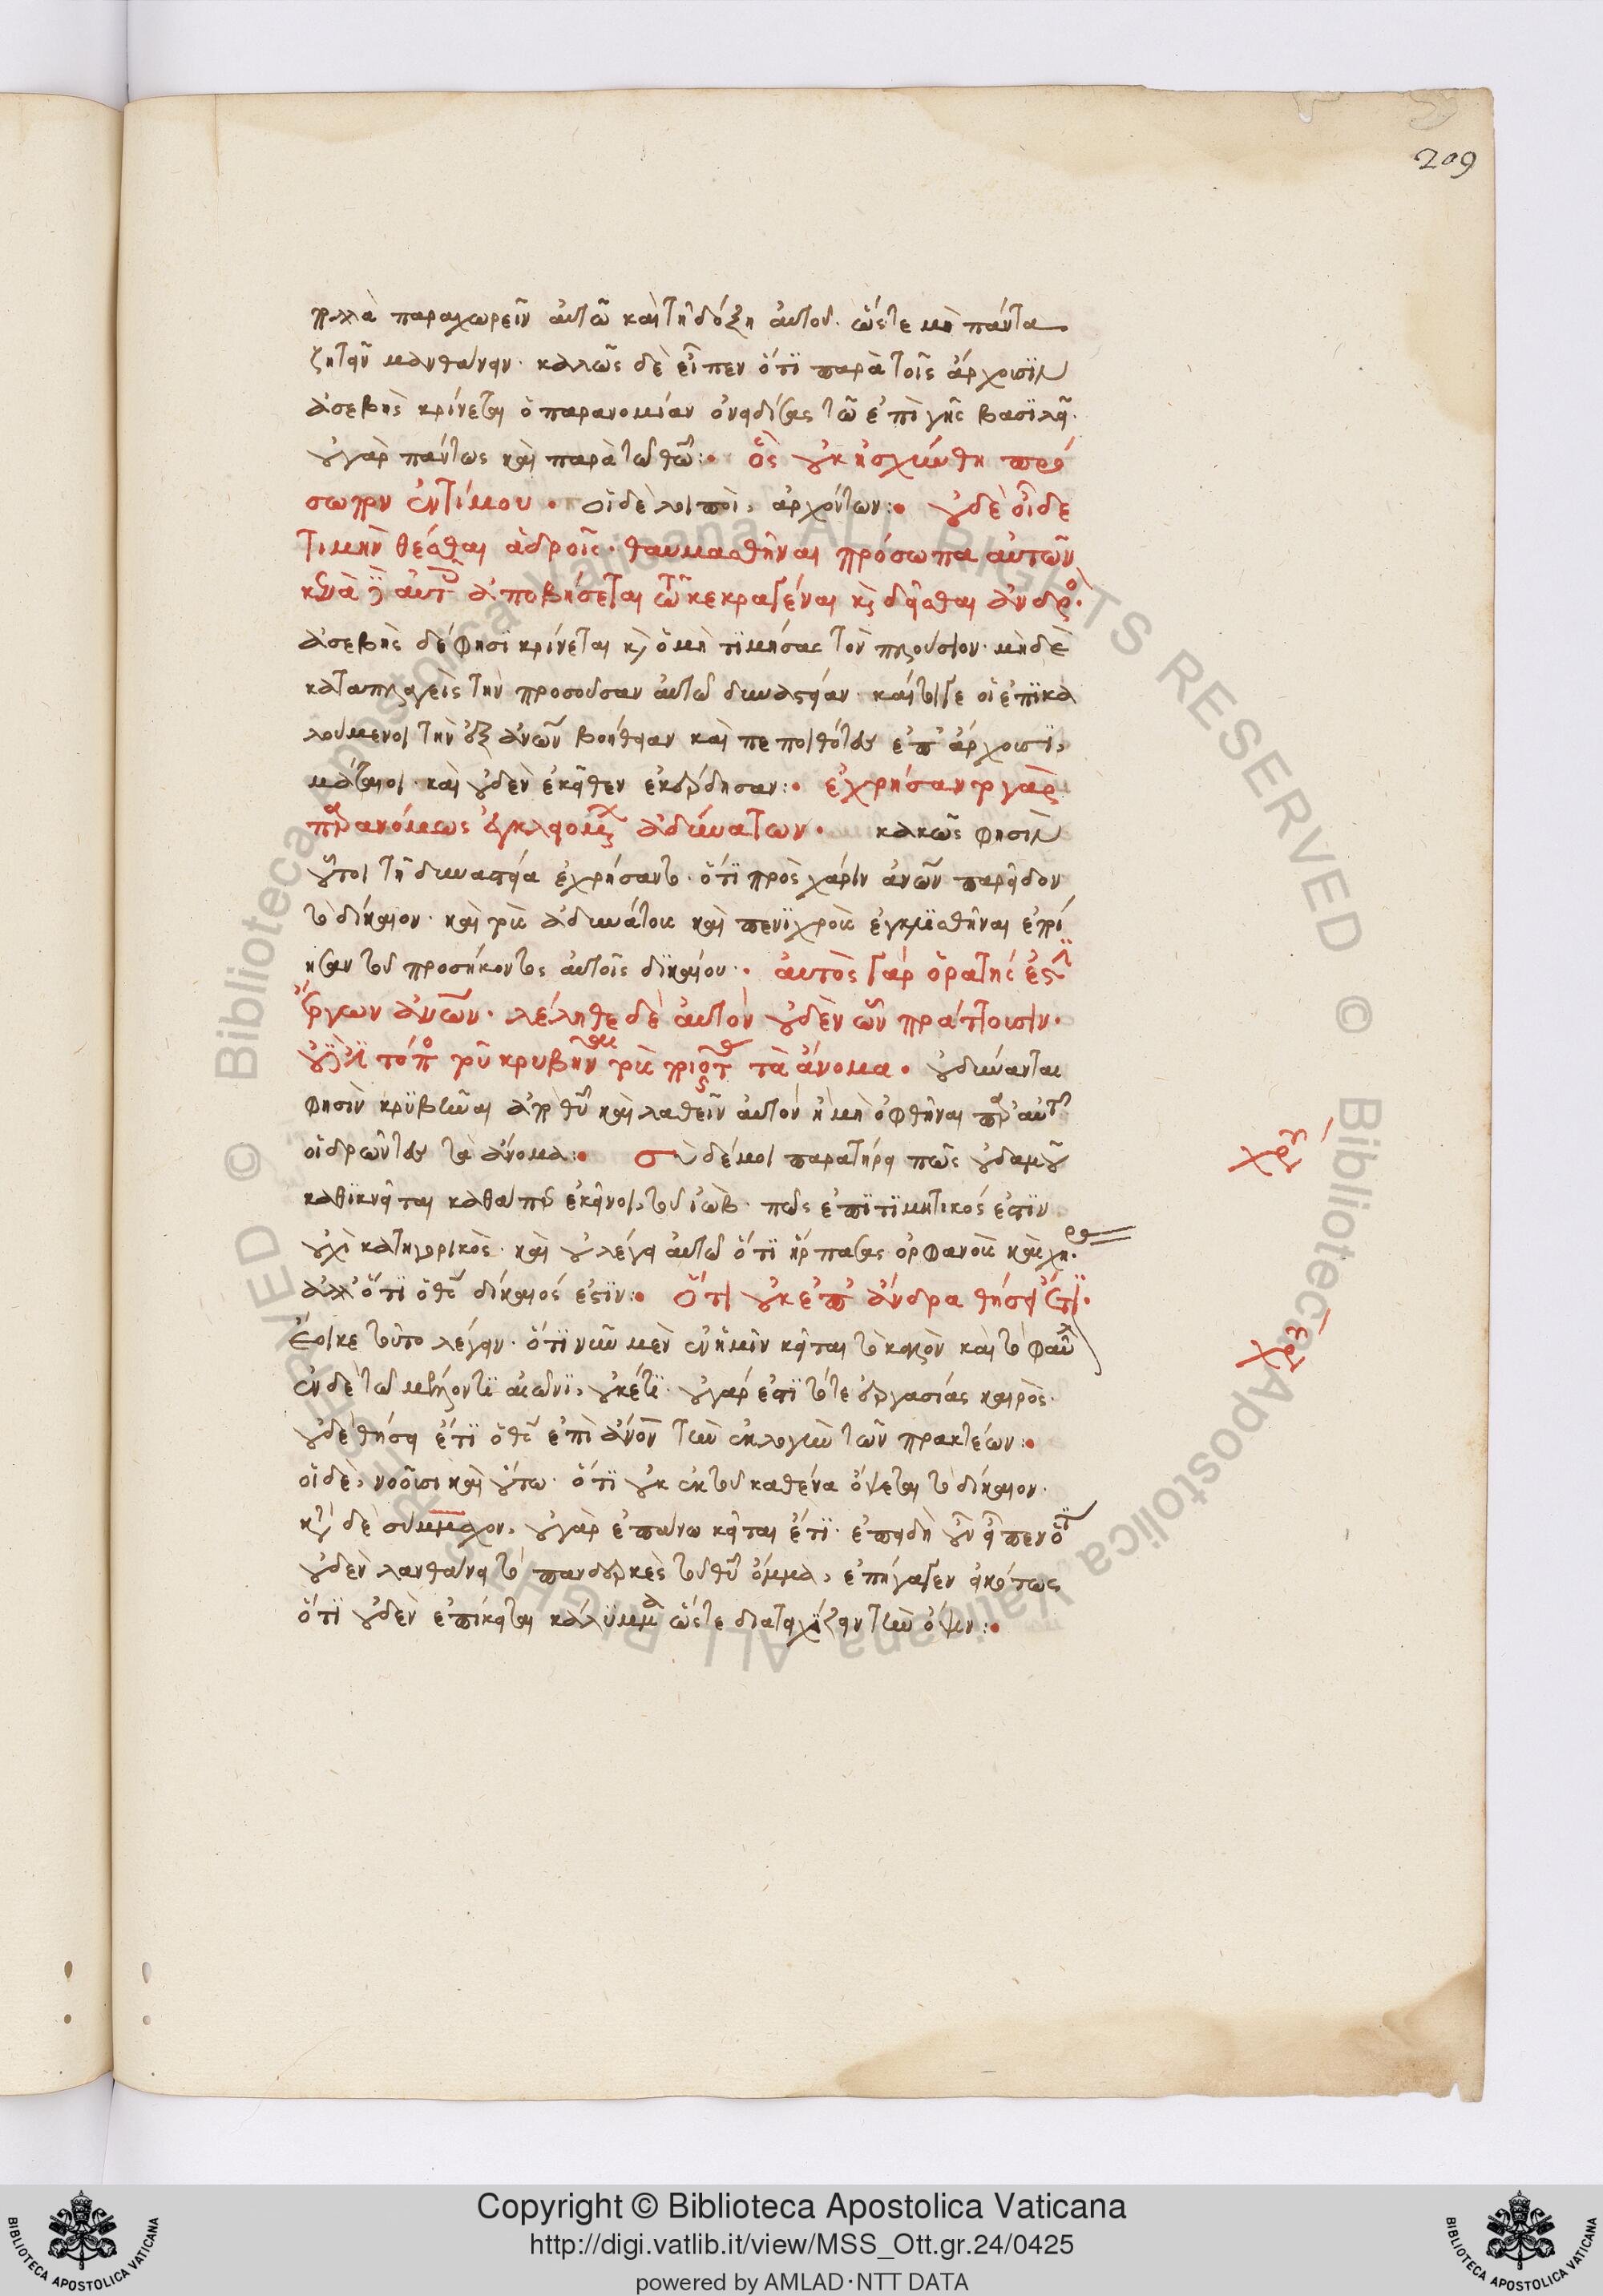 209
πολλὰ παραχωρεῖν αὐτῶ καὶ τῆ δόξη αὐτοῦ· ὥστε μὴ πάντα
ζητεῖν μανθάνειν· καλῶς δὲ εἶπεν ὅτι παρὰ τοῖς ἄρχουσιν
ἀσεβὴς κρίνεται ὁ παρανομίαν ὀνειδίσας τῶ ἐπὶ γῆς βασιλεῖ·
οὐ γὰρ πάντως καὶ παρὰ τῶ θῶ:· ὃς οὐκ ἠσχύνθη πρό
σωπον ἐντίμου· οἱ δὲ λοιποὶ, ἀρχόντων:· οὐδὲ οἶδε
τιμὴν θέσθαι ἁδροῖς· θαυμασθῆναι πρόσωπα αὐτῶν
κενὰ δὲ αὐτοῖς ἀποβήσεται τὸ κεκραγέναι κ δεῖσθαι ἀνδρός·
ἀσεβὴς δέ φησι κρίνεται κ ὁ μὴ τιμήσας τὸν πλούσιον· μηδὲ
καταπλαγεὶς τὴν προσοῦσαν αὐτῶ δυναστείαν· καίτοιγε οἱ ἐπικα
λούμενοι τὴν ἐξ ἀνῶν βοήθειαν καὶ πεποιθότες ἐπ' ἄρχουσι,
μάταιοι· καὶ οὐδὲν ἐκεῖθεν ἐκέρδησαν:· ἐχρήσαντο γὰρ
παρανόμως ἐκκλινομένων ἀδυνάτων· κακῶς φησιν
οὗτοι τῆ δυναστεία ἐχρήσαντο· ὅτι πρὸς χάριν ἀνῶν παρεῖδον
τὸ δίκαιον· καὶ τοὺς ἀδυνάτους καὶ πενιχροὺς
τοῦ προσήκοντος αὐτοῖς δικαίου· αὐτὸς γὰρ ὁρατής ἐστιν
ἔργων ἀνῶν· λέληθε δὲ αὐτὸν οὐδὲν ὧν πράττουσιν·
οὐδὲ ἔσται τόπος τοῦ κρυβῆναι τοὺς ποιοῦντας τὰ ἄνομα· οὐ δύνανται
φησὶν κρυβῆναι ἀπὸ θῦ καὶ λαθεῖν αὐτὸν ἢ μὴ ὀφθῆναι παρ' αὐτοῦ
οἱ δρῶντες τὰ ἄνομα:· σὺ δέ μοι παρατήρει πῶς οὐδαμοῦ
καθικνεῖται καθάπερ ἐκεῖνοι, τοῦ ἰώβ· πῶς ἐπιτιμητικός ἐστιν
οὐχὶ κατηγορικὸς· καὶ οὐ λέγει αὐτῶ ὅτι ἥρπασας ὀρφανοὺς καὶ χήρας·
ἀλλ' ὅτι ὁ θς δίκαιός ἐστιν:· ὅτι οὐκ ἐπ' ἄνδρα θήσει ἔτι·
ἔοικε τοῦτο λέγειν· ὅτι νῦν μὲν ἐν ἡμῖν κεῖται τὸ καλὸν καὶ τὸ φαῦλον
ἐν δὲ τῶ μέλλοντι αἰῶνι, οὐκέτι· οὐ γάρ ἐστι τότε ἐργασίας καιρὸς·
οὐδὲ θήσει ἔτι ὁ θς ἐπὶ ἄνον τὴν ἐκλογὴν τῶν πρακτέων:·
οἱ δὲ, νοοῦσι καὶ οὕτω· ὅτι οὐκ ἐκ τοῦ καθένα ὄψεται τὸ δίκαιον·
κατὰ δὲ σύμμαχον, οὐ γὰρ ἐπάνω κεῖται ἔτι· ἐπειδὴ οὖν εἶπεν ὅτι
οὐδὲν λανθάνει τὸ πανδερκὲς τοῦ θῦ ὄμμα, ἐπήγαγεν εἰκότως
ὅτι οὐδὲν ἐπίκειται κάλυμμα ὥστε διατειχίζειν τὴν ὄψιν:·
Copyright © Biblioteca Apostolica Vaticana
http://digi.vatlib.it/view/MSS_Ott.gr.24/0425
powered by AMLAD·NTT DATA
BIBLIOTECA APOSTOLICA VATICANA
BIBLIOTECA APOSTOLICA VATICANA